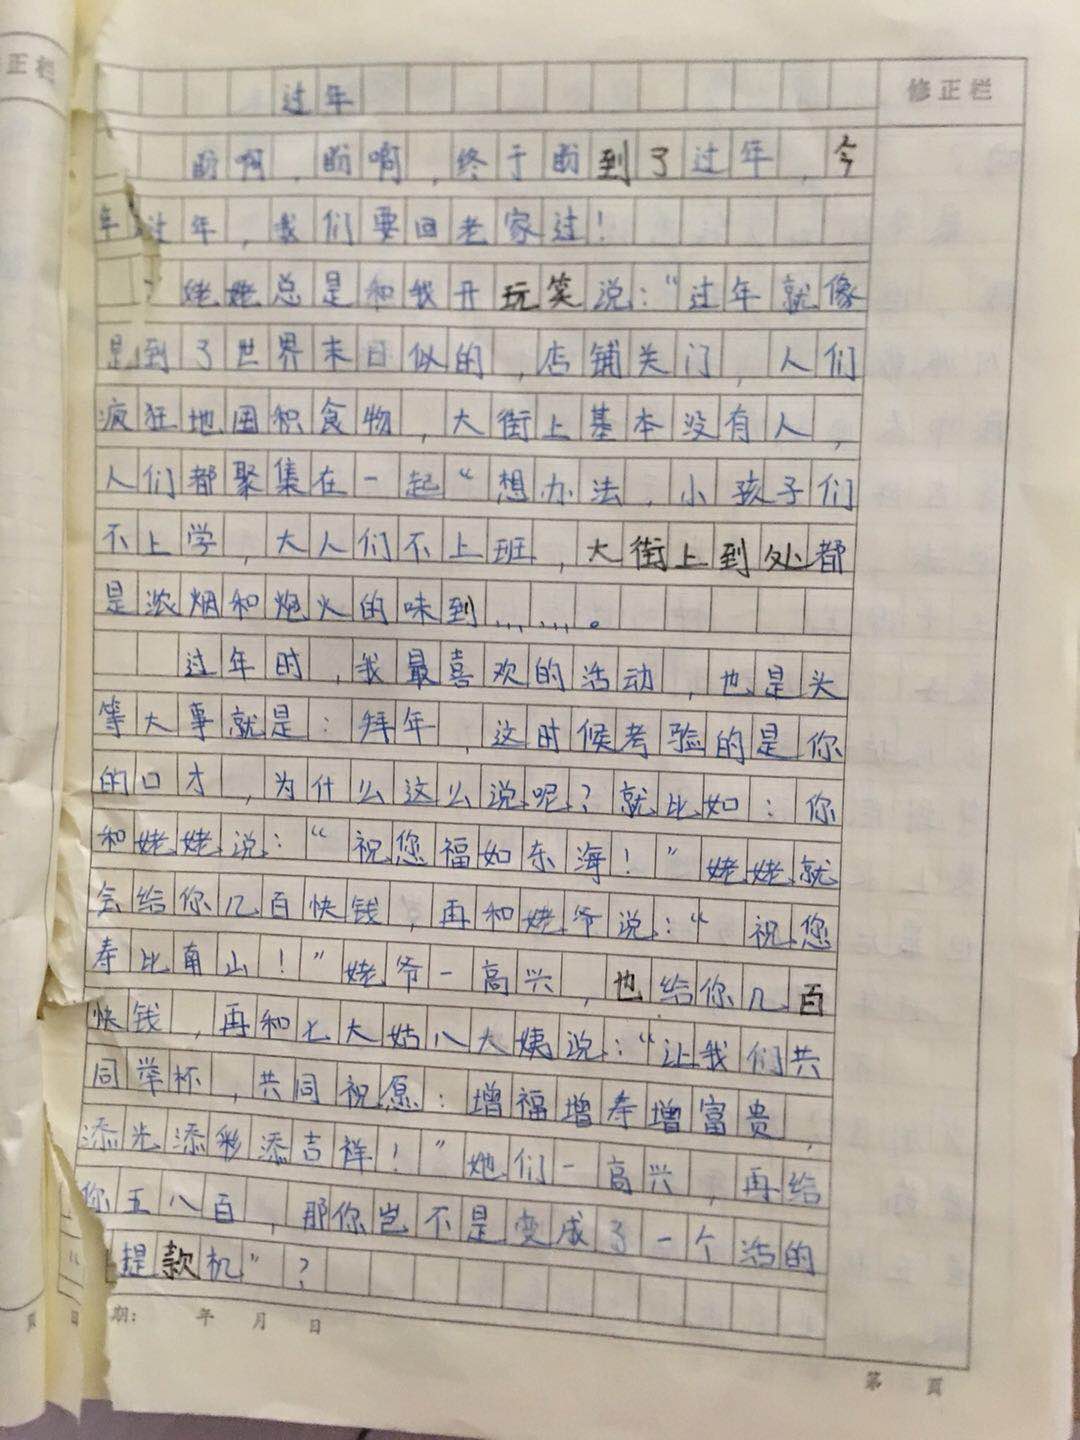 正栏
修正栏
过年
盼啊，盼啊，终于盼到了过年，今
年过年，我们要回老家过！
姥姥总是和我开玩笑说：“过年就像
是到了世界末日似的，店铺关门，人们
疯狂地囤积食物，大街上基本没有人，
人们都聚集在一起“想办法，小孩子们
不上学，大人们不上班，大街上到处都
是浓烟和炮火的味到……。
过年时，我最喜欢的活动，也是头
等大事就是：拜年，这时候考验的是你
的口才，为什么这么说呢？就比如：你
和姥姥说：“祝您福如东海！”姥姥就
会给你几百快钱，再和姥爷说：“祝您
寿比南山！”姥爷一高兴，也给你几百
快钱，再和七大姑八大姨说：“让我们共
同举杯，共同祝愿：增福增寿增富贵，
添光添彩添吉祥！”她们一高兴，再给
你五八百，那你岂不是变成了一个活的
提款机”？
页 日期： 年 月 日
第 页